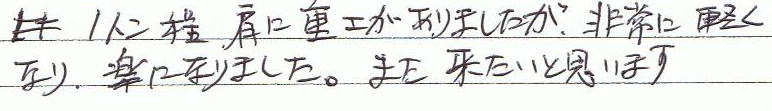 肩に重さがありましたが、非常に軽く
なり、楽になりました。また来たいと思います